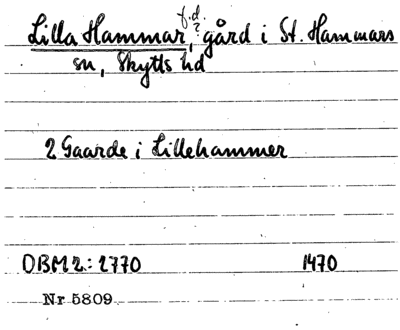 f.d.?
Lilla Hammar, gård i St. Hammars
sn, Skytts hd
2 Gaarde i Lillehammer
DBM 2: 2770 1470
Nr 5809